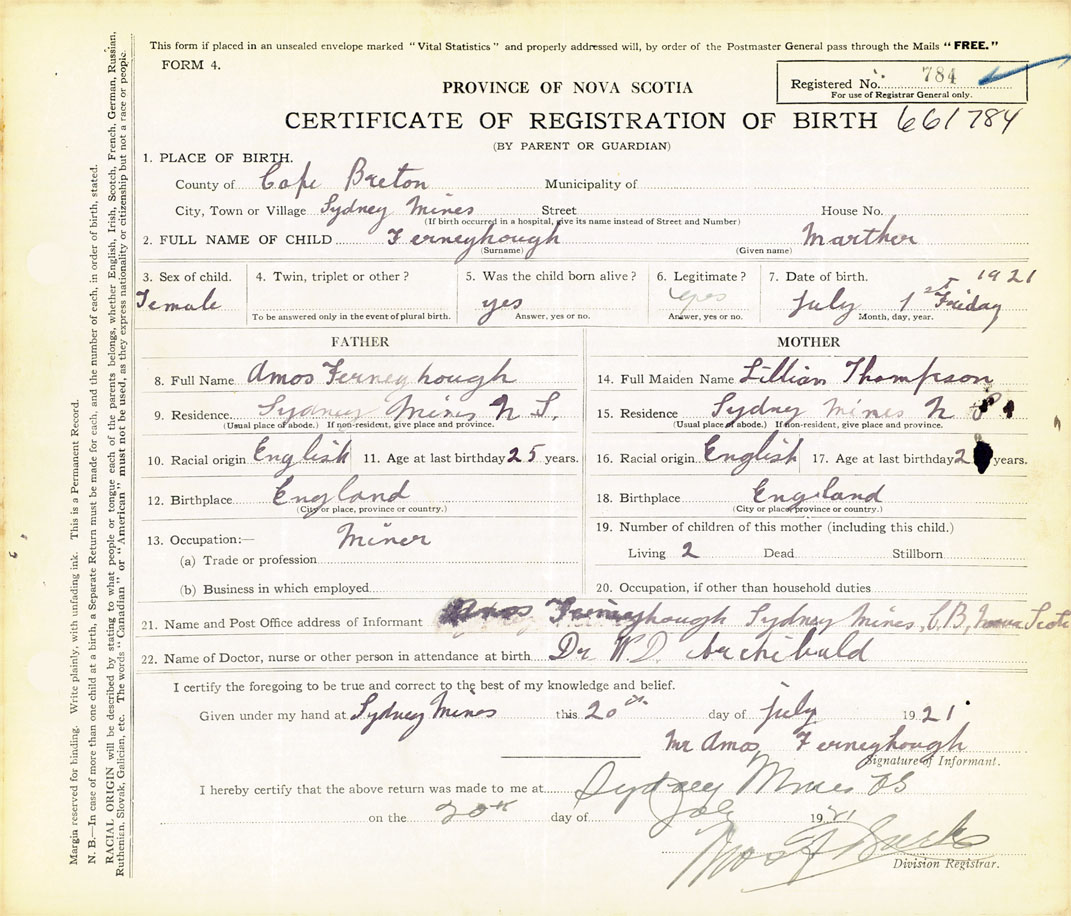 This form if placed in an unsealed envelope marked "Vital Statistics" and properly addressed will, by order of the Postmaster General pass through the Mails "FREE."
FORM 4.
Registered No. 784
For use of Registrar General only.
PROVINCE OF NOVA SCOTIA
CERTIFICATE OF REGISTRATION OF BIRTH 661784
(BY PARENT OR GUARDIAN)
1. PLACE OF BIRTH.
County of Cape Breton Municipality of
City, Town or Village Sydney Mines Street House No.
(If birth occurred in a hospital, give its name instead of Street and Number)
2. FULL NAME OF CHILD Ferneyhough Marther
(Surname) (Given name)
3. Sex of child. 4. Twin, triplet or other? 5. Was the child born alive? 6. Legitimate? 7. Date of birth. 1921
Female yes yes July 1st Friday
To be answered only in the event of plural birth. Answer, yes or no. Answer, yes or no. Month, day, year.
FATHER MOTHER
8. Full Name Amos Ferneyhough 14. Full Maiden Name Lillian Thompson
9. Residence Sydney Mines N S. 15. Residence Sydney Mines N S
(Usual place of abode.) If non-resident, give place and province. (Usual place of abode.) If non-resident, give place and province.
10. Racial origin English 11. Age at last birthday 25 years. 16. Racial origin English 17. Age at last birthday 2 years.
12. Birthplace England 18. Birthplace England
(City or place, province or country.) (City or place, province or country.)
13. Occupation:— Miner 19. Number of children of this mother (including this child.)
(a) Trade or profession Living 2 Dead Stillborn
(b) Business in which employed 20. Occupation, if other than household duties
21. Name and Post Office address of Informant Amos Ferneyhough Sydney Mines, C.B, Nova Scotia
22. Name of Doctor, nurse or other person in attendance at birth Dr W.D. Archibald
I certify the foregoing to be true and correct to the best of my knowledge and belief.
Given under my hand at Sydney Mines this 20th day of july 1921
Mr Amos Ferneyhough
Signature of Informant.
I hereby certify that the above return was made to me at Sydney Mines
on the 20th day of July 1921
Division Registrar.
Margin reserved for binding. Write plainly, with unfading ink. This is a Permanent Record.
N. B.—In case of more than one child at a birth, a Separate Return must be made for each, and the number of each, in order of birth, stated.
RACIAL ORIGIN will be described by stating to what people or tongue each of the parents belongs, whether English, Irish, Scotch, French, German, Russian,
Ruthenian, Slovak, Galician, etc. The words "Canadian" or "American" must not be used, as they express nationality or citizenship but not a race or people.